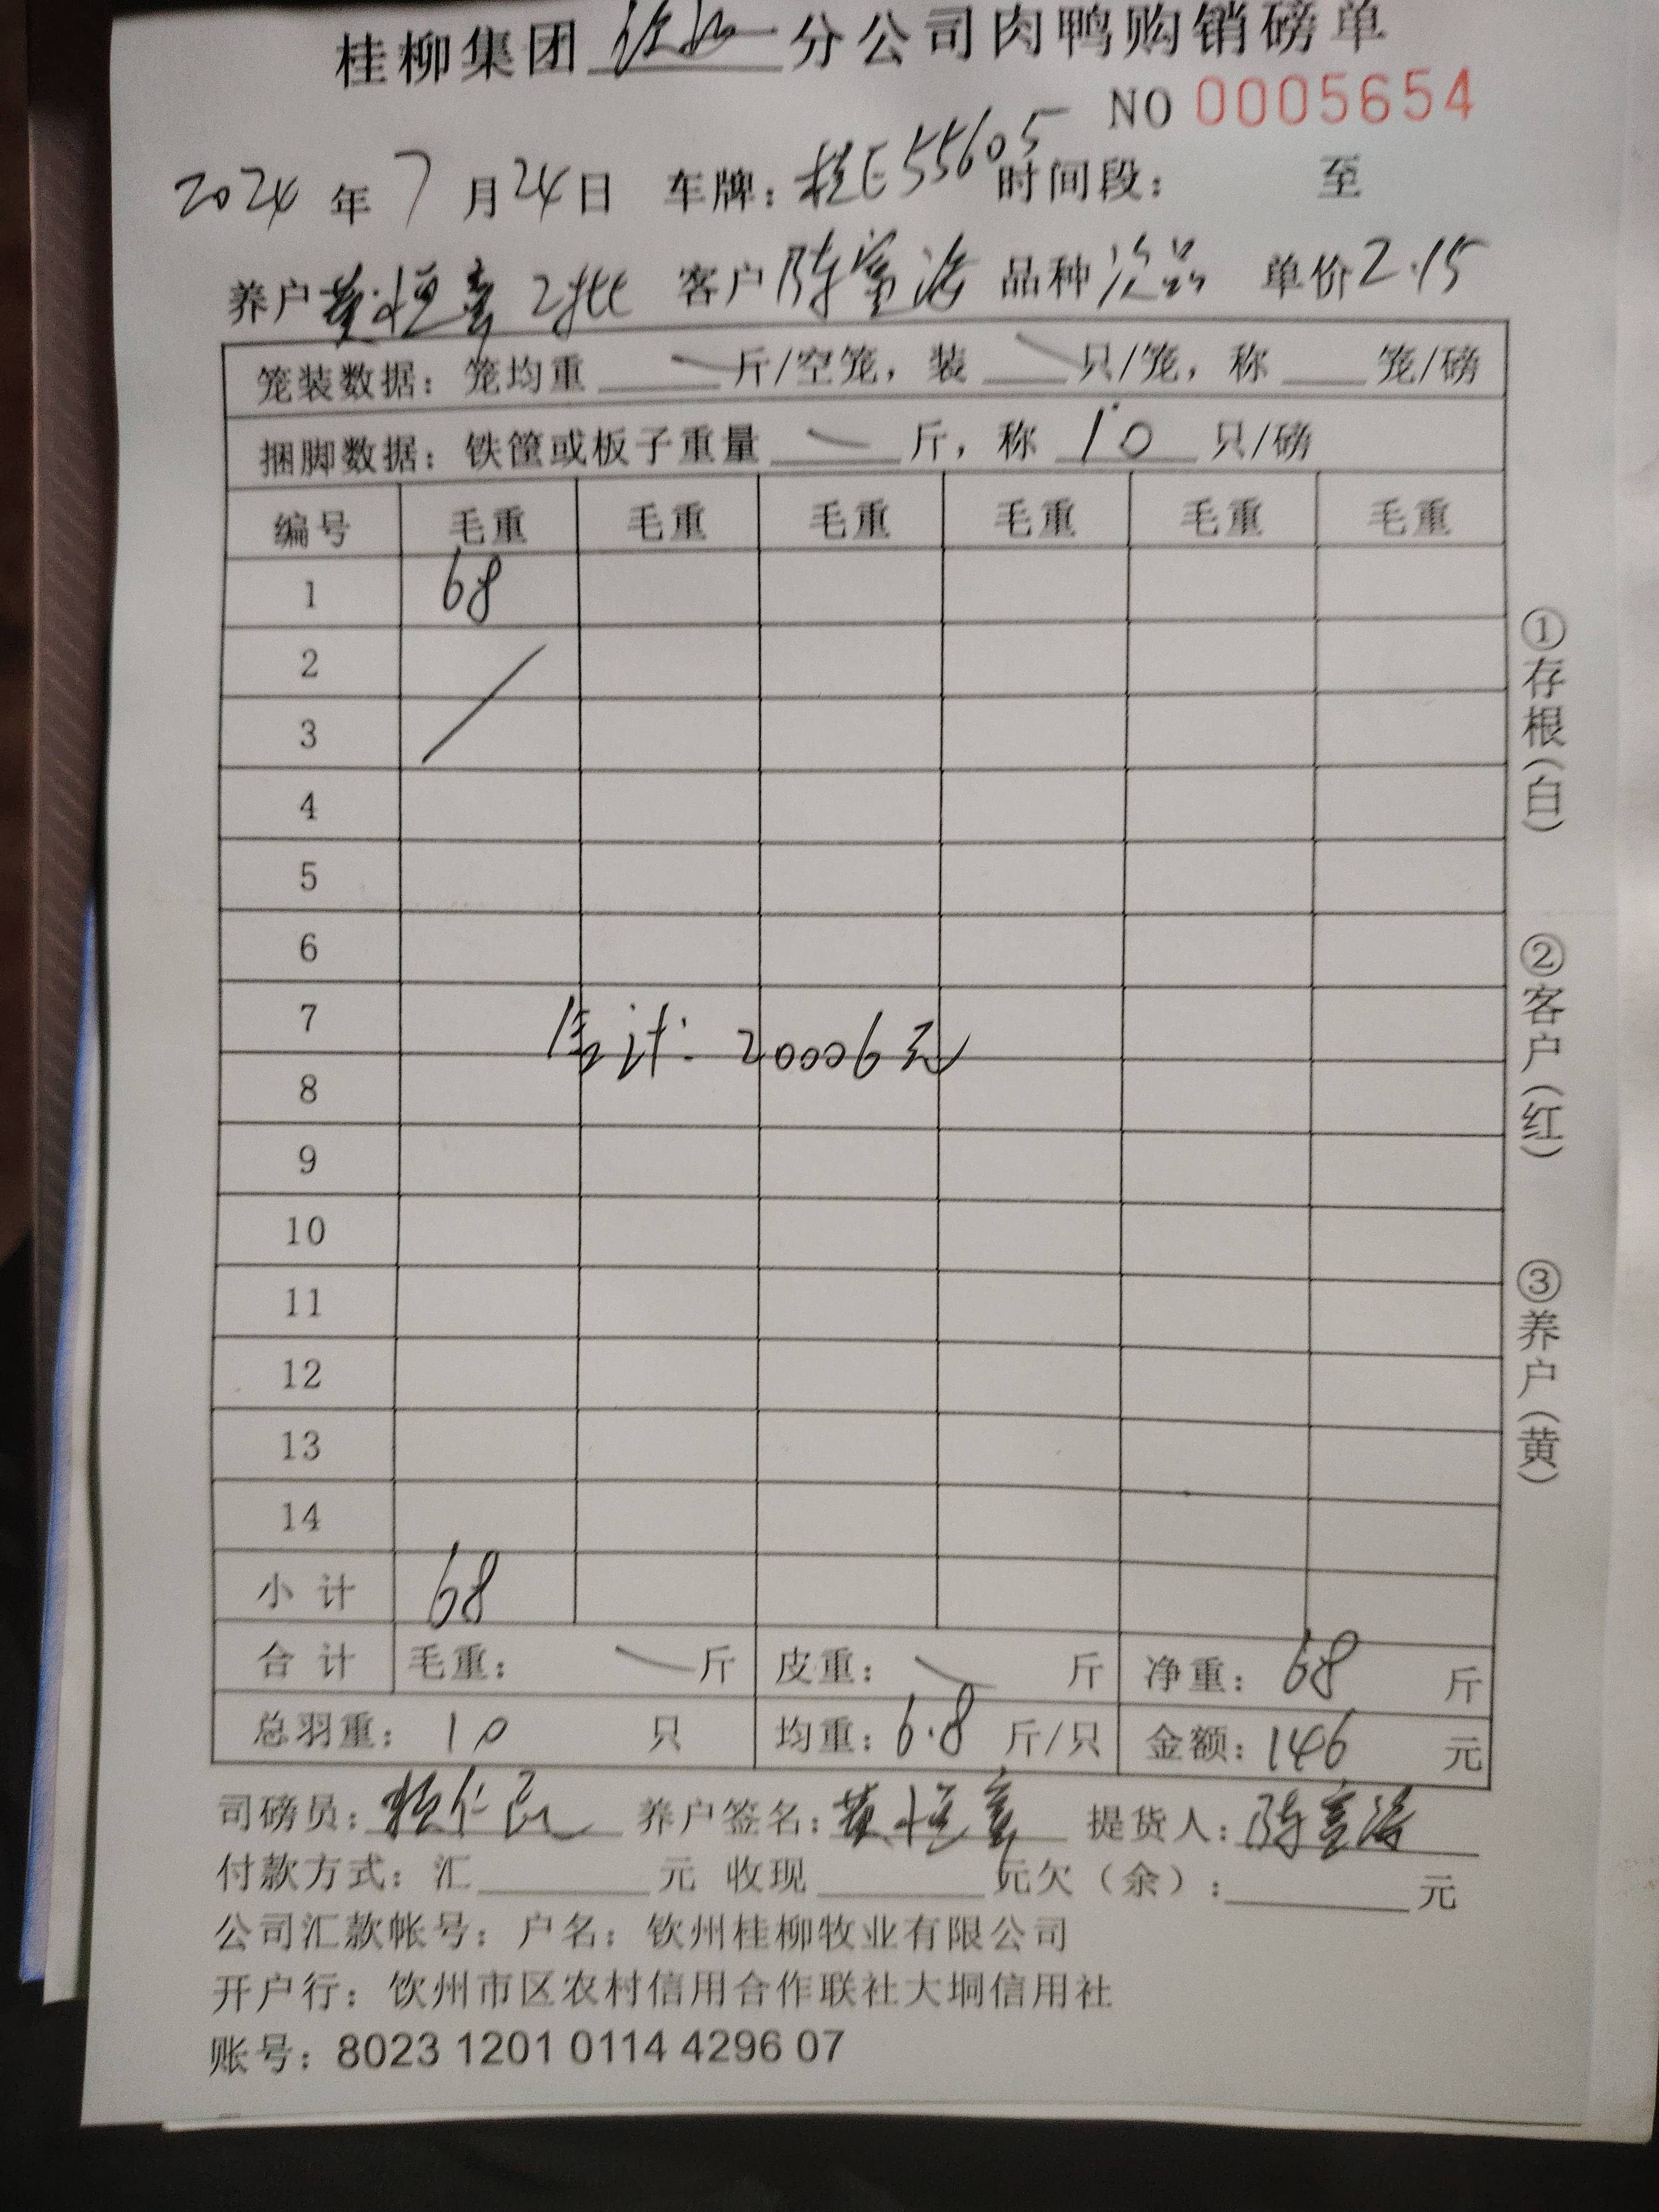 桂柳集团 钦州 分公司肉鸭购销磅单
NO 0005654
2024 年 7 月 24 日 车牌：桂E55605 时间段： 至
养户 黄恒 2批 客户 陈富海 品种 次品 单价 2.15
笼装数据：笼均重 斤/空笼，装 只/笼，称 笼/磅
捆脚数据：铁筐或板子重量 斤，称 10 只/磅
编号 毛重 毛重 毛重 毛重 毛重 毛重
1 68
2
3
4
5
6
7
总计：20006元
8
9
10
11
12
13
14
小计 68
合计 毛重： 斤 皮重： 斤 净重：68 斤
总羽重：10 只 均重：6.8 斤/只 金额：146 元
司磅员： 养户签名：黄恒 提货人：陈富海
付款方式：汇 元 收现 元欠（余）： 元
公司汇款帐号：户名：钦州桂柳牧业有限公司
开户行：饮州市区农村信用合作联社大垌信用社
账号：8023 1201 0114 4296 07
①存根（白）
②客户（红）
③养户（黄）